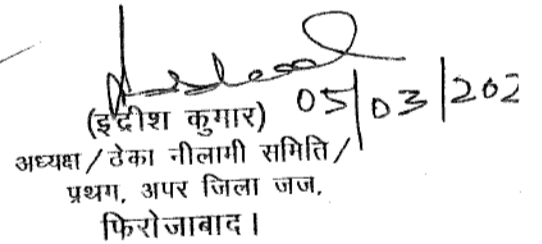 05/03/202
(इद्रीश कुमार)
अध्यक्ष/ठेका नीलामी समिति/
प्रथग, अपर जिला जज,
फिरोजाबाद।